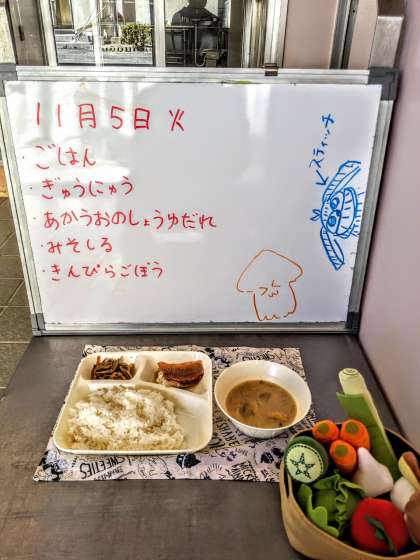 11月5日 火
・ごはん
・ぎゅうにゅう
・あかうおのしょうゆだれ
・みそしる
・きんぴらごぼう
スティッチ
SWEETIES